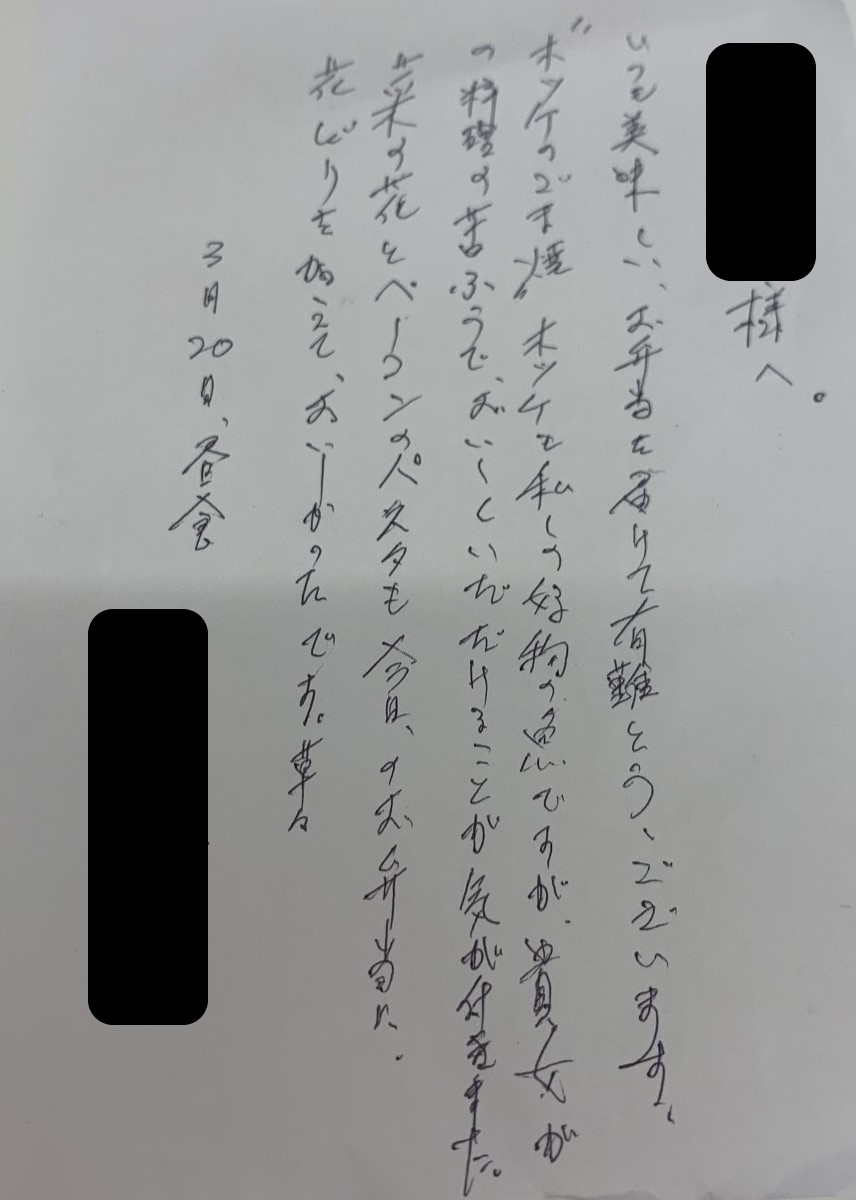 様へ。
いつも美味しい、お弁当を届けて有難とう、ございます、
"ホッケのごま焼〃ホッケも私しの好物の魚ですが、貴女が
の料理の苦ふうで、おいしくいただけることが気が付きました。
菜の花とベーコンのパスタも今日、のお弁当に、
花どりを加えて、おいしかったです。草々
3月20日、昼食